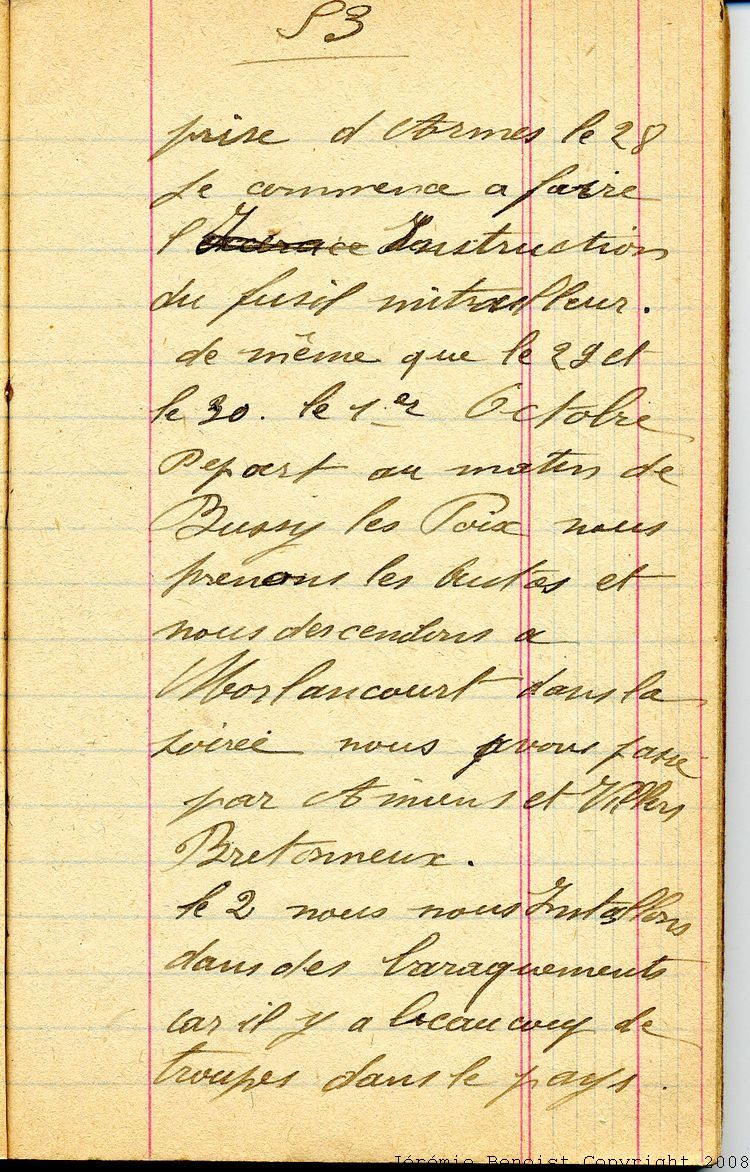 53
prise d Armes le 28
Je commence a faire
l Instruction
du fusil mitrailleur.
de même que le 29 et
le 30. le 1er Octobre
Depart au matin de
Bussy les Poix nous
prenons les Autos et
nous descendons a
Morlancourt dans la
soirée nous avons passé
par Amiens et Villers
Bretonneux.
le 2 nous nous Installons
dans des baraquements
car il y a beaucoup de
troupes dans le pays.
Jérémie Benoist Copyright 2008